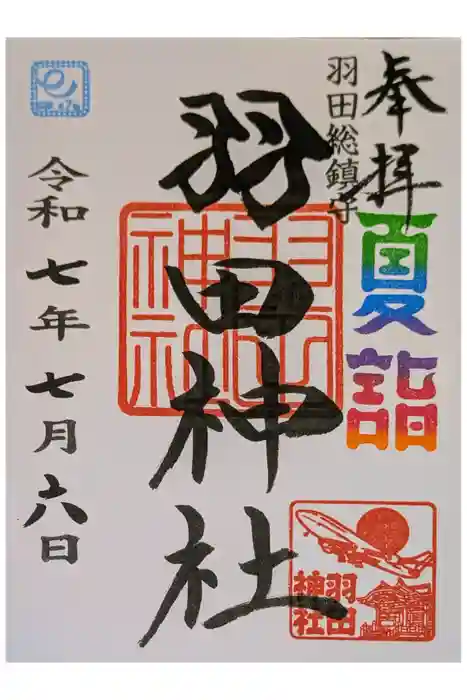 奉拝
羽田総鎮守
夏詣
羽田神社
羽田
神社
羽田
神社
令和七年七月六日
巳